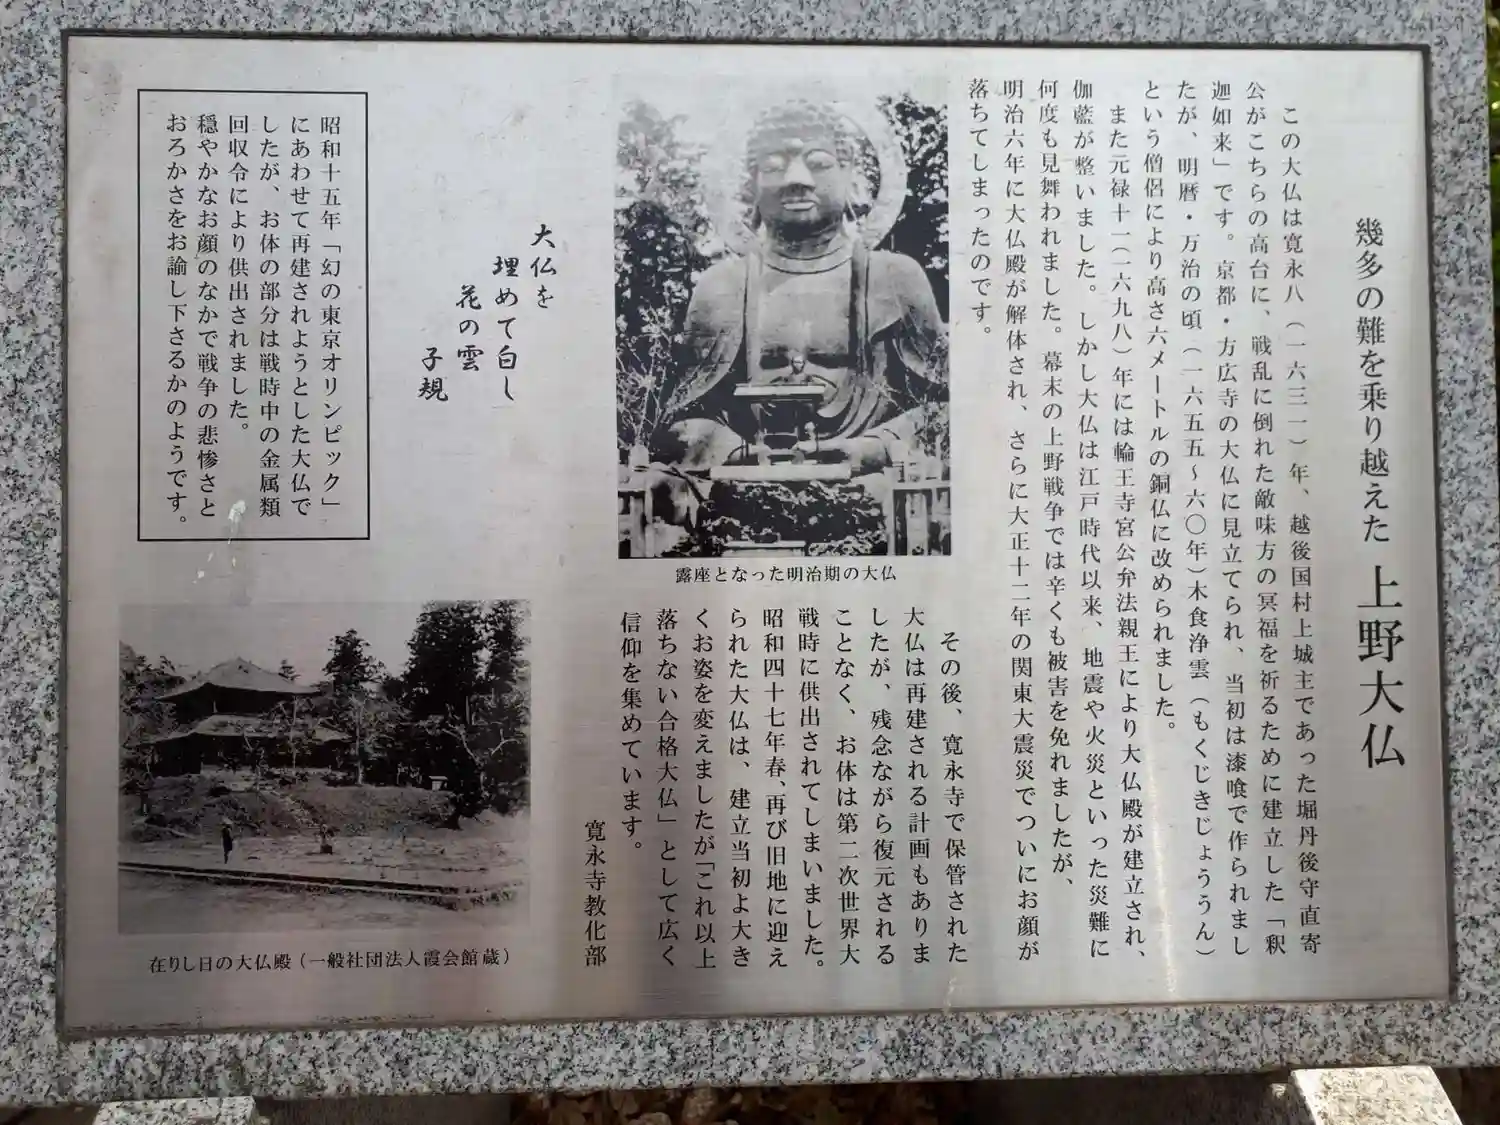 幾多の難を乗り越えた 上野大仏
この大仏は寛永八（一六三一）年、越後国村上城主であった堀丹後守直寄
公がこちらの高台に、戦乱に倒れた敵味方の冥福を祈るために建立した「釈
迦如来」です。京都・方広寺の大仏に見立てられ、当初は漆喰で作られまし
たが、明暦・万治の頃（一六五五～六〇年）木食浄雲（もくじきじょううん）
という僧侶により高さ六メートルの銅仏に改められました。
また元禄十一（一六九八）年には輪王寺宮公弁法親王により大仏殿が建立され、
伽藍が整いました。しかし大仏は江戸時代以来、地震や火災といった災難に
何度も見舞われました。幕末の上野戦争では辛くも被害を免れましたが、
明治六年に大仏殿が解体され、さらに大正十二年の関東大震災でついにお顔が
落ちてしまったのです。
露座となった明治期の大仏
その後、寛永寺で保管された
大仏は再建される計画もありま
したが、残念ながら復元される
ことなく、お体は第二次世界大
戦時に供出されてしまいました。
昭和四十七年春、再び旧地に迎え
られた大仏は、建立当初よ大き
くお姿を変えましたが「これ以上
落ちない合格大仏」として広く
信仰を集めています。
寛永寺教化部
大仏を
埋めて白し
花の雲
子規
昭和十五年「幻の東京オリンピック」
にあわせて再建されようとした大仏で
したが、お体の部分は戦時中の金属類
回収令により供出されました。
穏やかなお顔のなかで戦争の悲惨さと
おろかさをお諭し下さるかのようです。
在りし日の大仏殿（一般社団法人霞会館蔵）